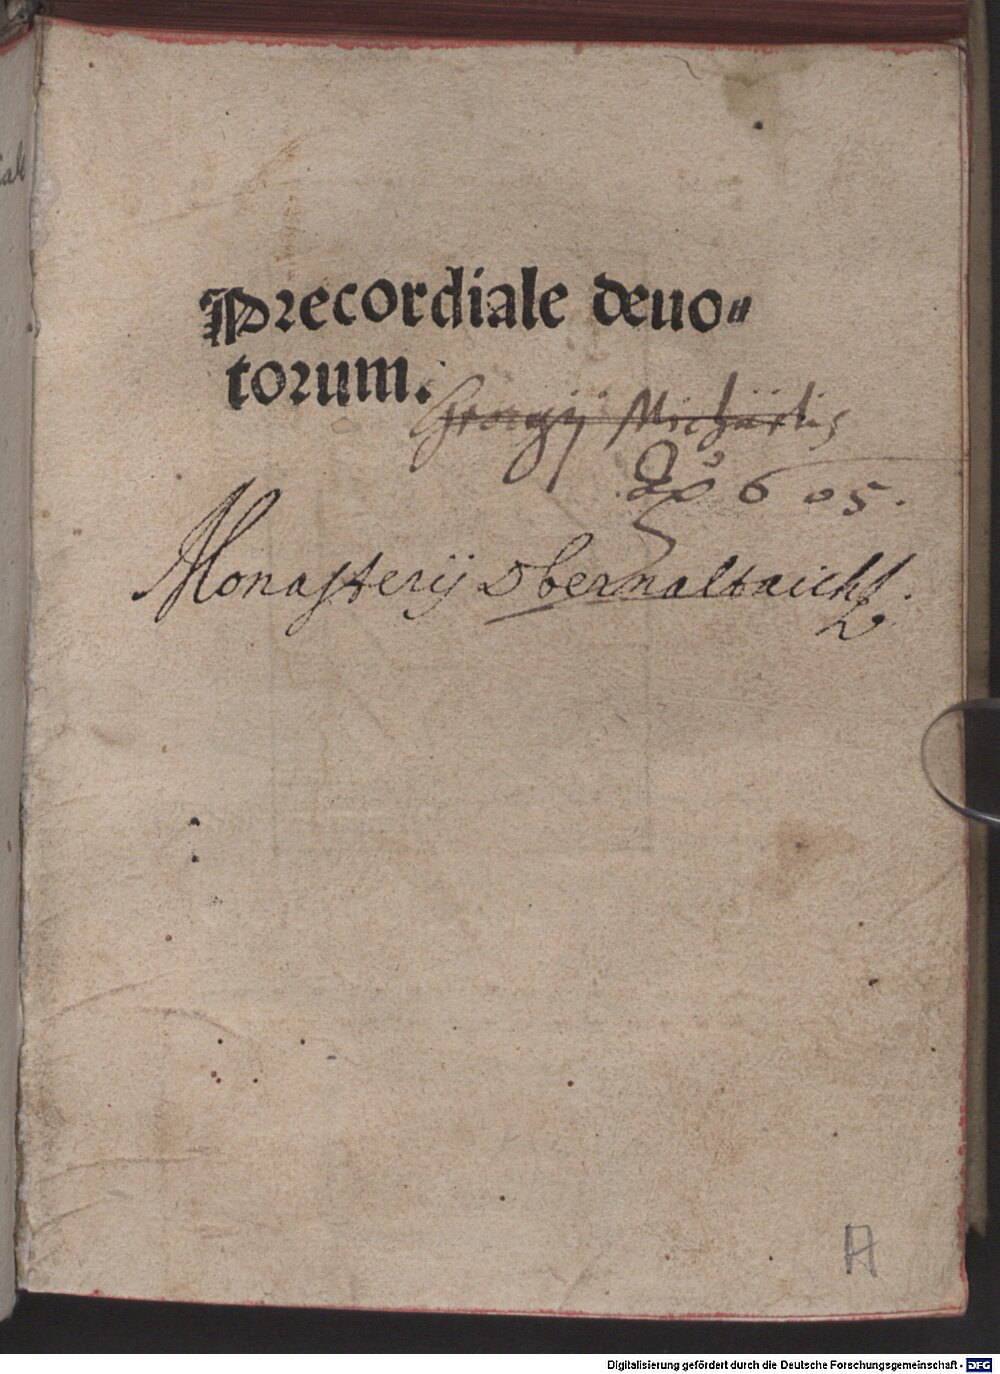 Precordiale deuo-
torum.
Georgij Michaelis
605.
Monasterij Obernaltaich
A
Digitalisierung gefördert durch die Deutsche Forschungsgemeinschaft - DFG